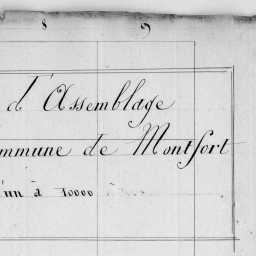 8 9
d'Assemblage
mmune de Montfort
d'un à 10000